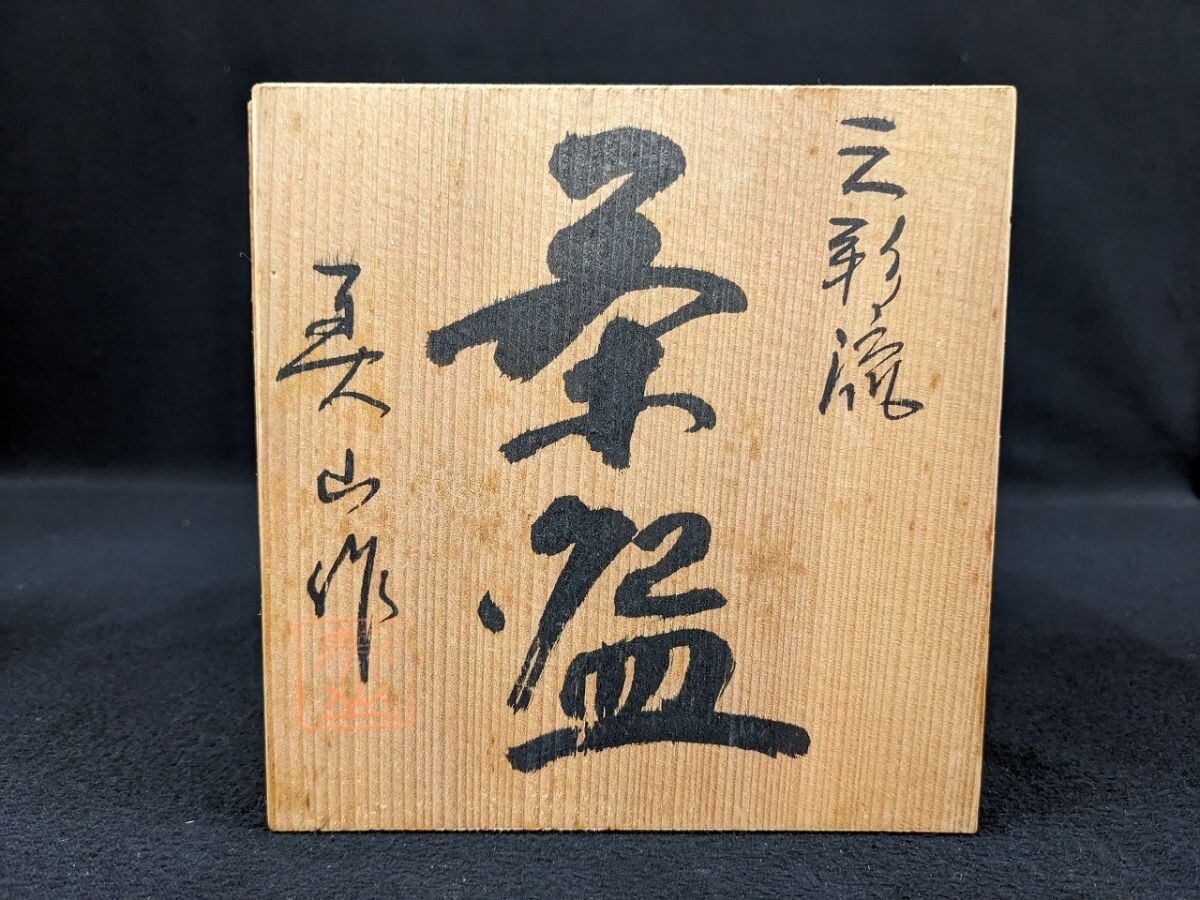 三彩流
茶盌
山作